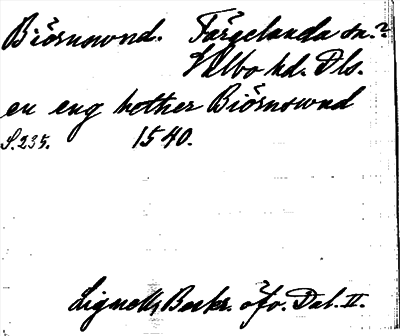 Biörnswnd. Färgelanda sn.?
Valbo hd. Dls.
en eng hether Biörnswnd
S. 235. 1540.
Lignells Beskr. öfv. Dal. II.